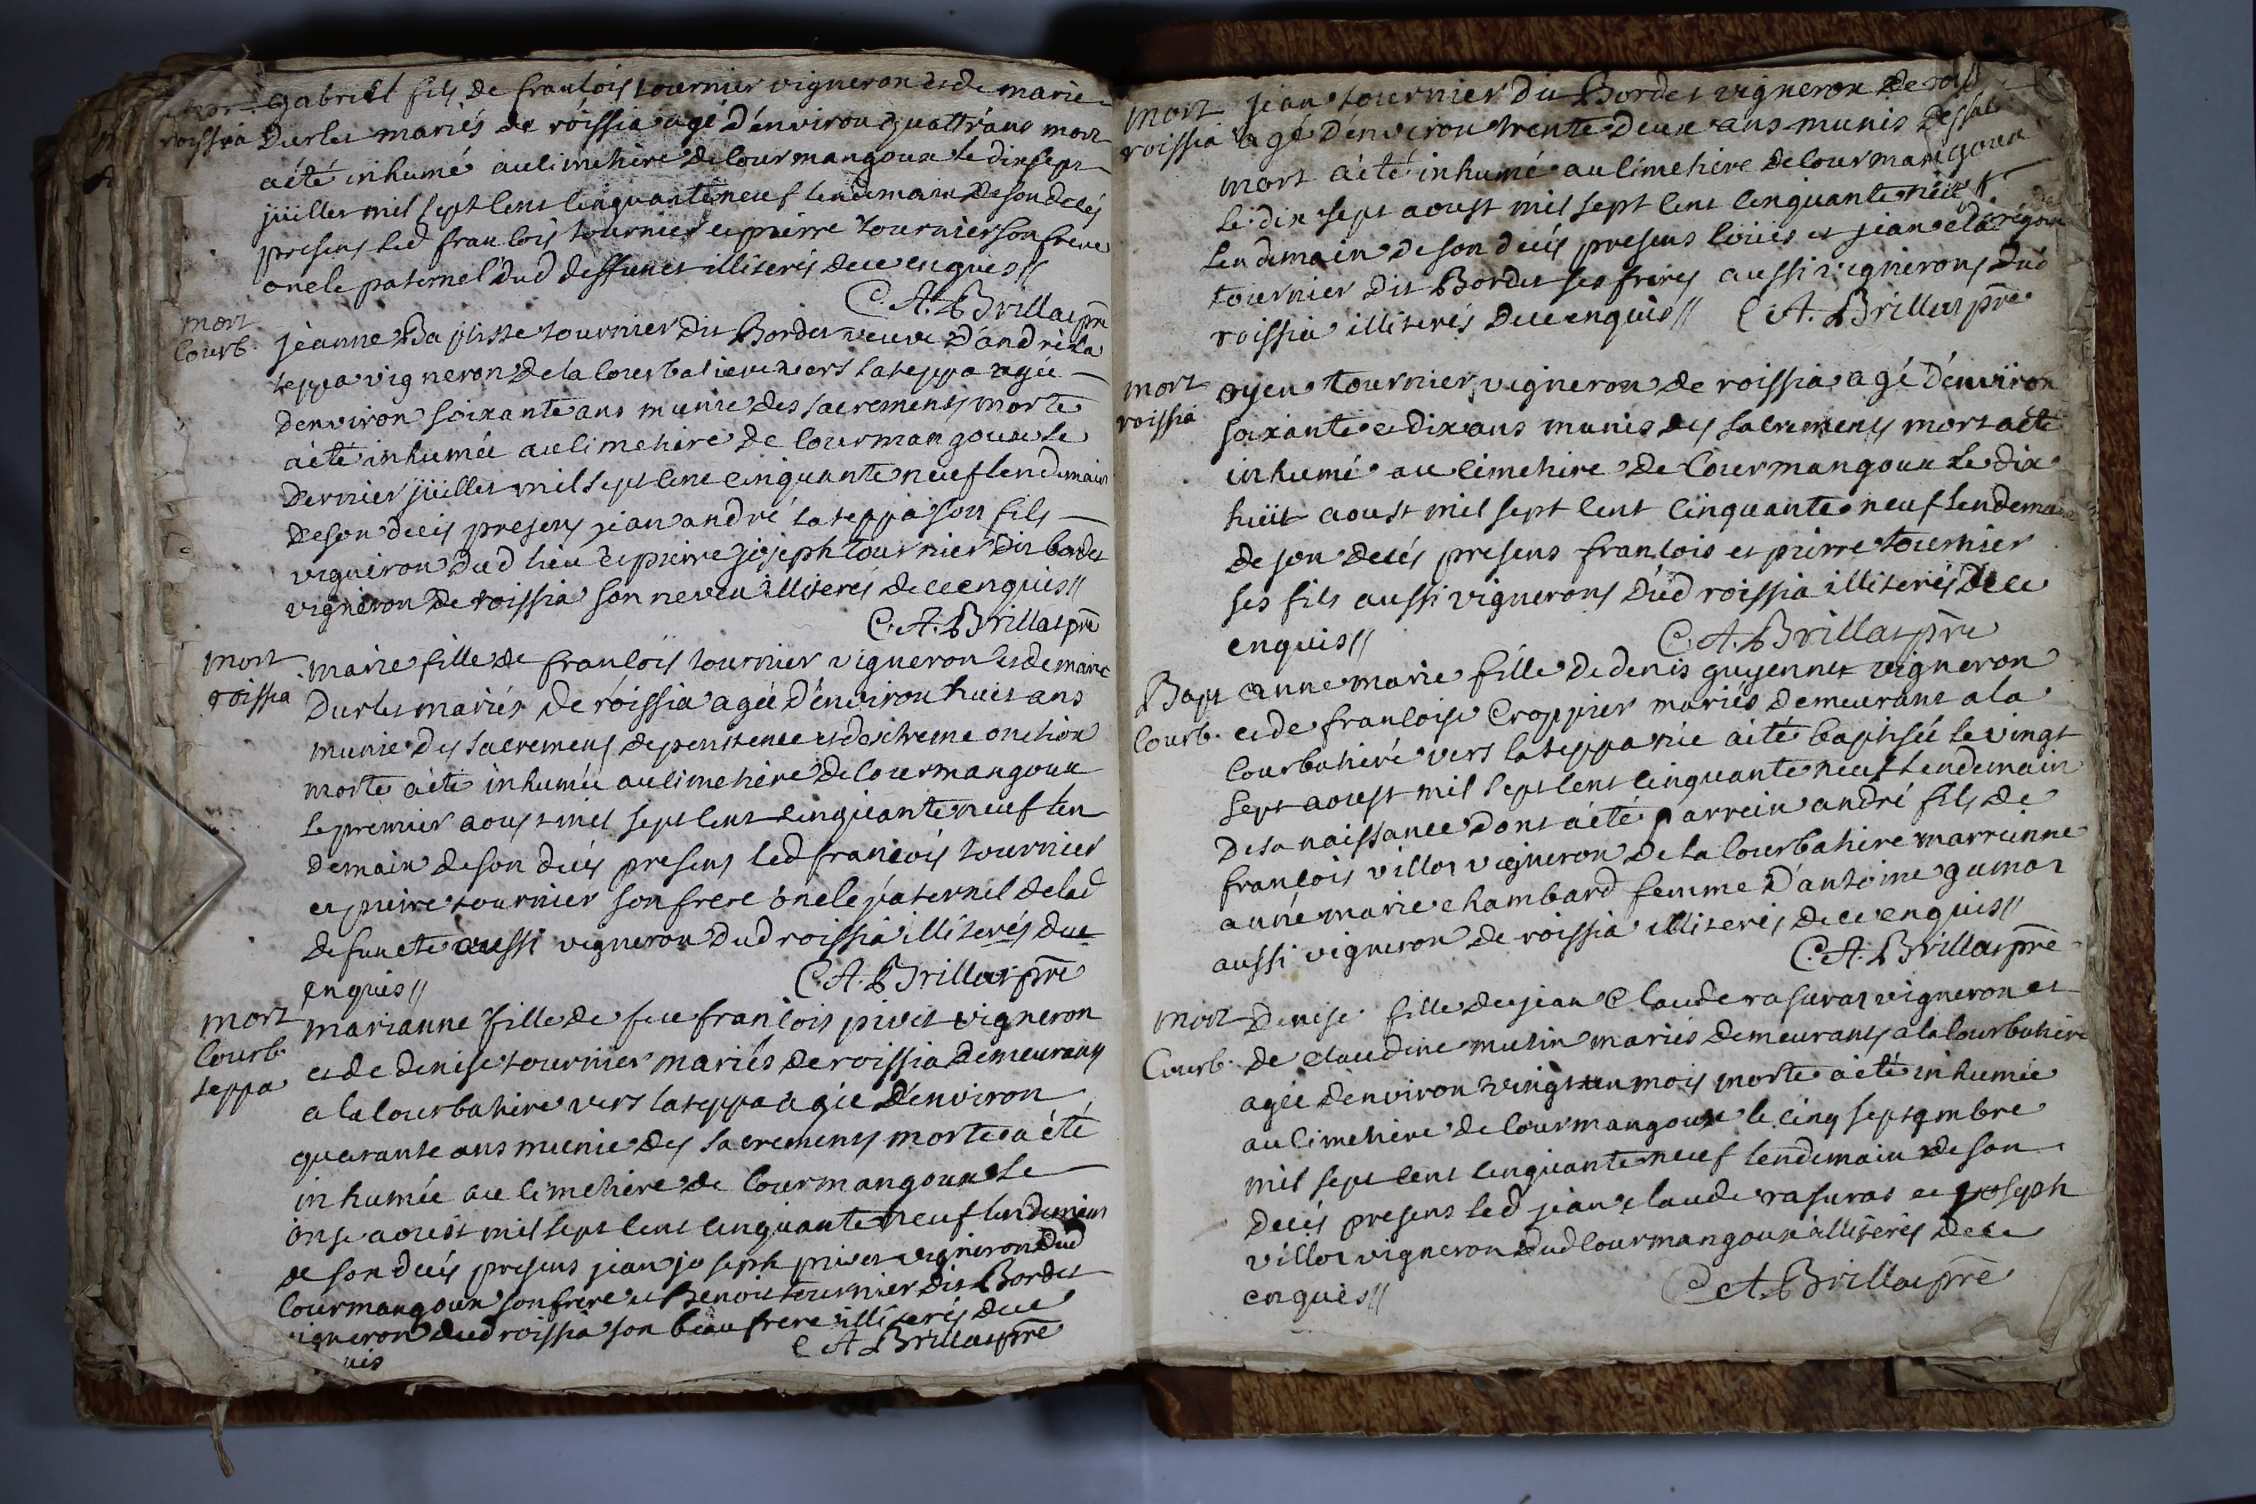 mort
roissia
gabriel fils de francois tournier vigneron et de marie
Durlet mariés de roissia agé d'environ quattr'ans mort
a été inhumé au cimetiere de Courmangoux le dix sept
juillet mil sept cent cinquante neuf lendemain de son decés
presens led francois tournier et pierre tournier son frere
oncle paternel dud deffunct illiterés de ce enquis //
C. A. Brillat prê
mort
Courb.
jeanne Baptiste tournier dit Bordet veuve d'andré la
teppa vigneron de la Courbatiere vers la teppa agée
d'environ soixante ans munie des sacremens morte
a été inhumée au cimetiere de Courmangoux le
dernier juillet mil sept cent cinquante neuf lendemain
de son decés presens jean andré lateppa son fils
vigneron dud lieu et pierre joseph tournier dit bordet
vigneron de roissia son neveu illiterés de ce enquis //
C. A. Brillat prê
mort
roissia
marie fille de francois tournier vigneron et de marie
Durlet mariés de roissia agée d'environ huit ans
munie des sacremens de penitence et d'extreme onction
morte a été inhumée au cimetiere de Courmangoux
le premier aoust mil sept cent cinquante neuf len
demain de son decés presens led francois tournier
et pierre tournier son frere oncle paternel de lad
defuncte aussi vigneron dud roissia illiterés de ce
enquis //
C. A. Brillat prê
mort
Courb.
teppa
marianne fille de feu francois pivet vigneron
et de denise tournier mariés de roissia demeurans
a la Courbatiere vers la teppa agée d'environ
quarante ans munie des sacremens morte a été
inhumée au cimetiere de Courmangoux le
onse aoust mil sept cent cinquante neuf lendemain
de son decés presens jean joseph pivet vigneron dud
Courmangoux son frere et Benoit tournier dit Bordet
vigneron dud roissia son beau frere illiterés de ce
C A Brillat prê
mort
roissia
jean tournier dit Bordet vigneron de
agé d'environ trente deux ans munis des sac
mort a été inhumé au cimetiere de Courmangoux
le dix sept aoust mil sept cent cinquante neuf
lendemain de son decés presens et jean
tournier dit Bordet ses freres aussi vignerons dud
roissia illiterés de ce enquis // C A. Brillat prê
mort
roissia
oyen tournier vigneron de roissia agé d'environ
soixante et dix ans munis des sacremens mort a été
inhumé au cimetiere de Courmangoux le dix
huit aoust mil sept cent cinquante neuf lendemain
de son decés presens francois et pierre tournier
ses fils aussi vignerons dud roissia illiterés de ce
enquis //
C. A. Brillat prê
Bapt
Courb.
anne marie fille de denis guyennet vigneron
et de francoise Croppier mariés demeurant a la
Courbatiere vers la teppa née a été baptisée le vingt
sept aoust mil sept cent cinquante neuf lendemain
de sa naissance dont a été parrein andré fils de
francois villot vigneron de la Courbatiere marreinne
anne marie chambard femme d'antoine gumot
aussi vigneron de roissia illiterés de ce enquis //
C. A. Brillat prê
mort
Courb.
Denise fille de jean Claude rasurat vigneron et
de claudine mutin mariés demeurans a la Courbatiere
agée d'environ vingt un mois morte a été inhumée
au cimetiere de Courmangoux le cinq septembre
mil sept cent cinquante neuf lendemain de son
decés presens led jean claude rasurat et joseph
villot vigneron dud Courmangoux illiterés de ce
enquis //
C A. Brillat prê